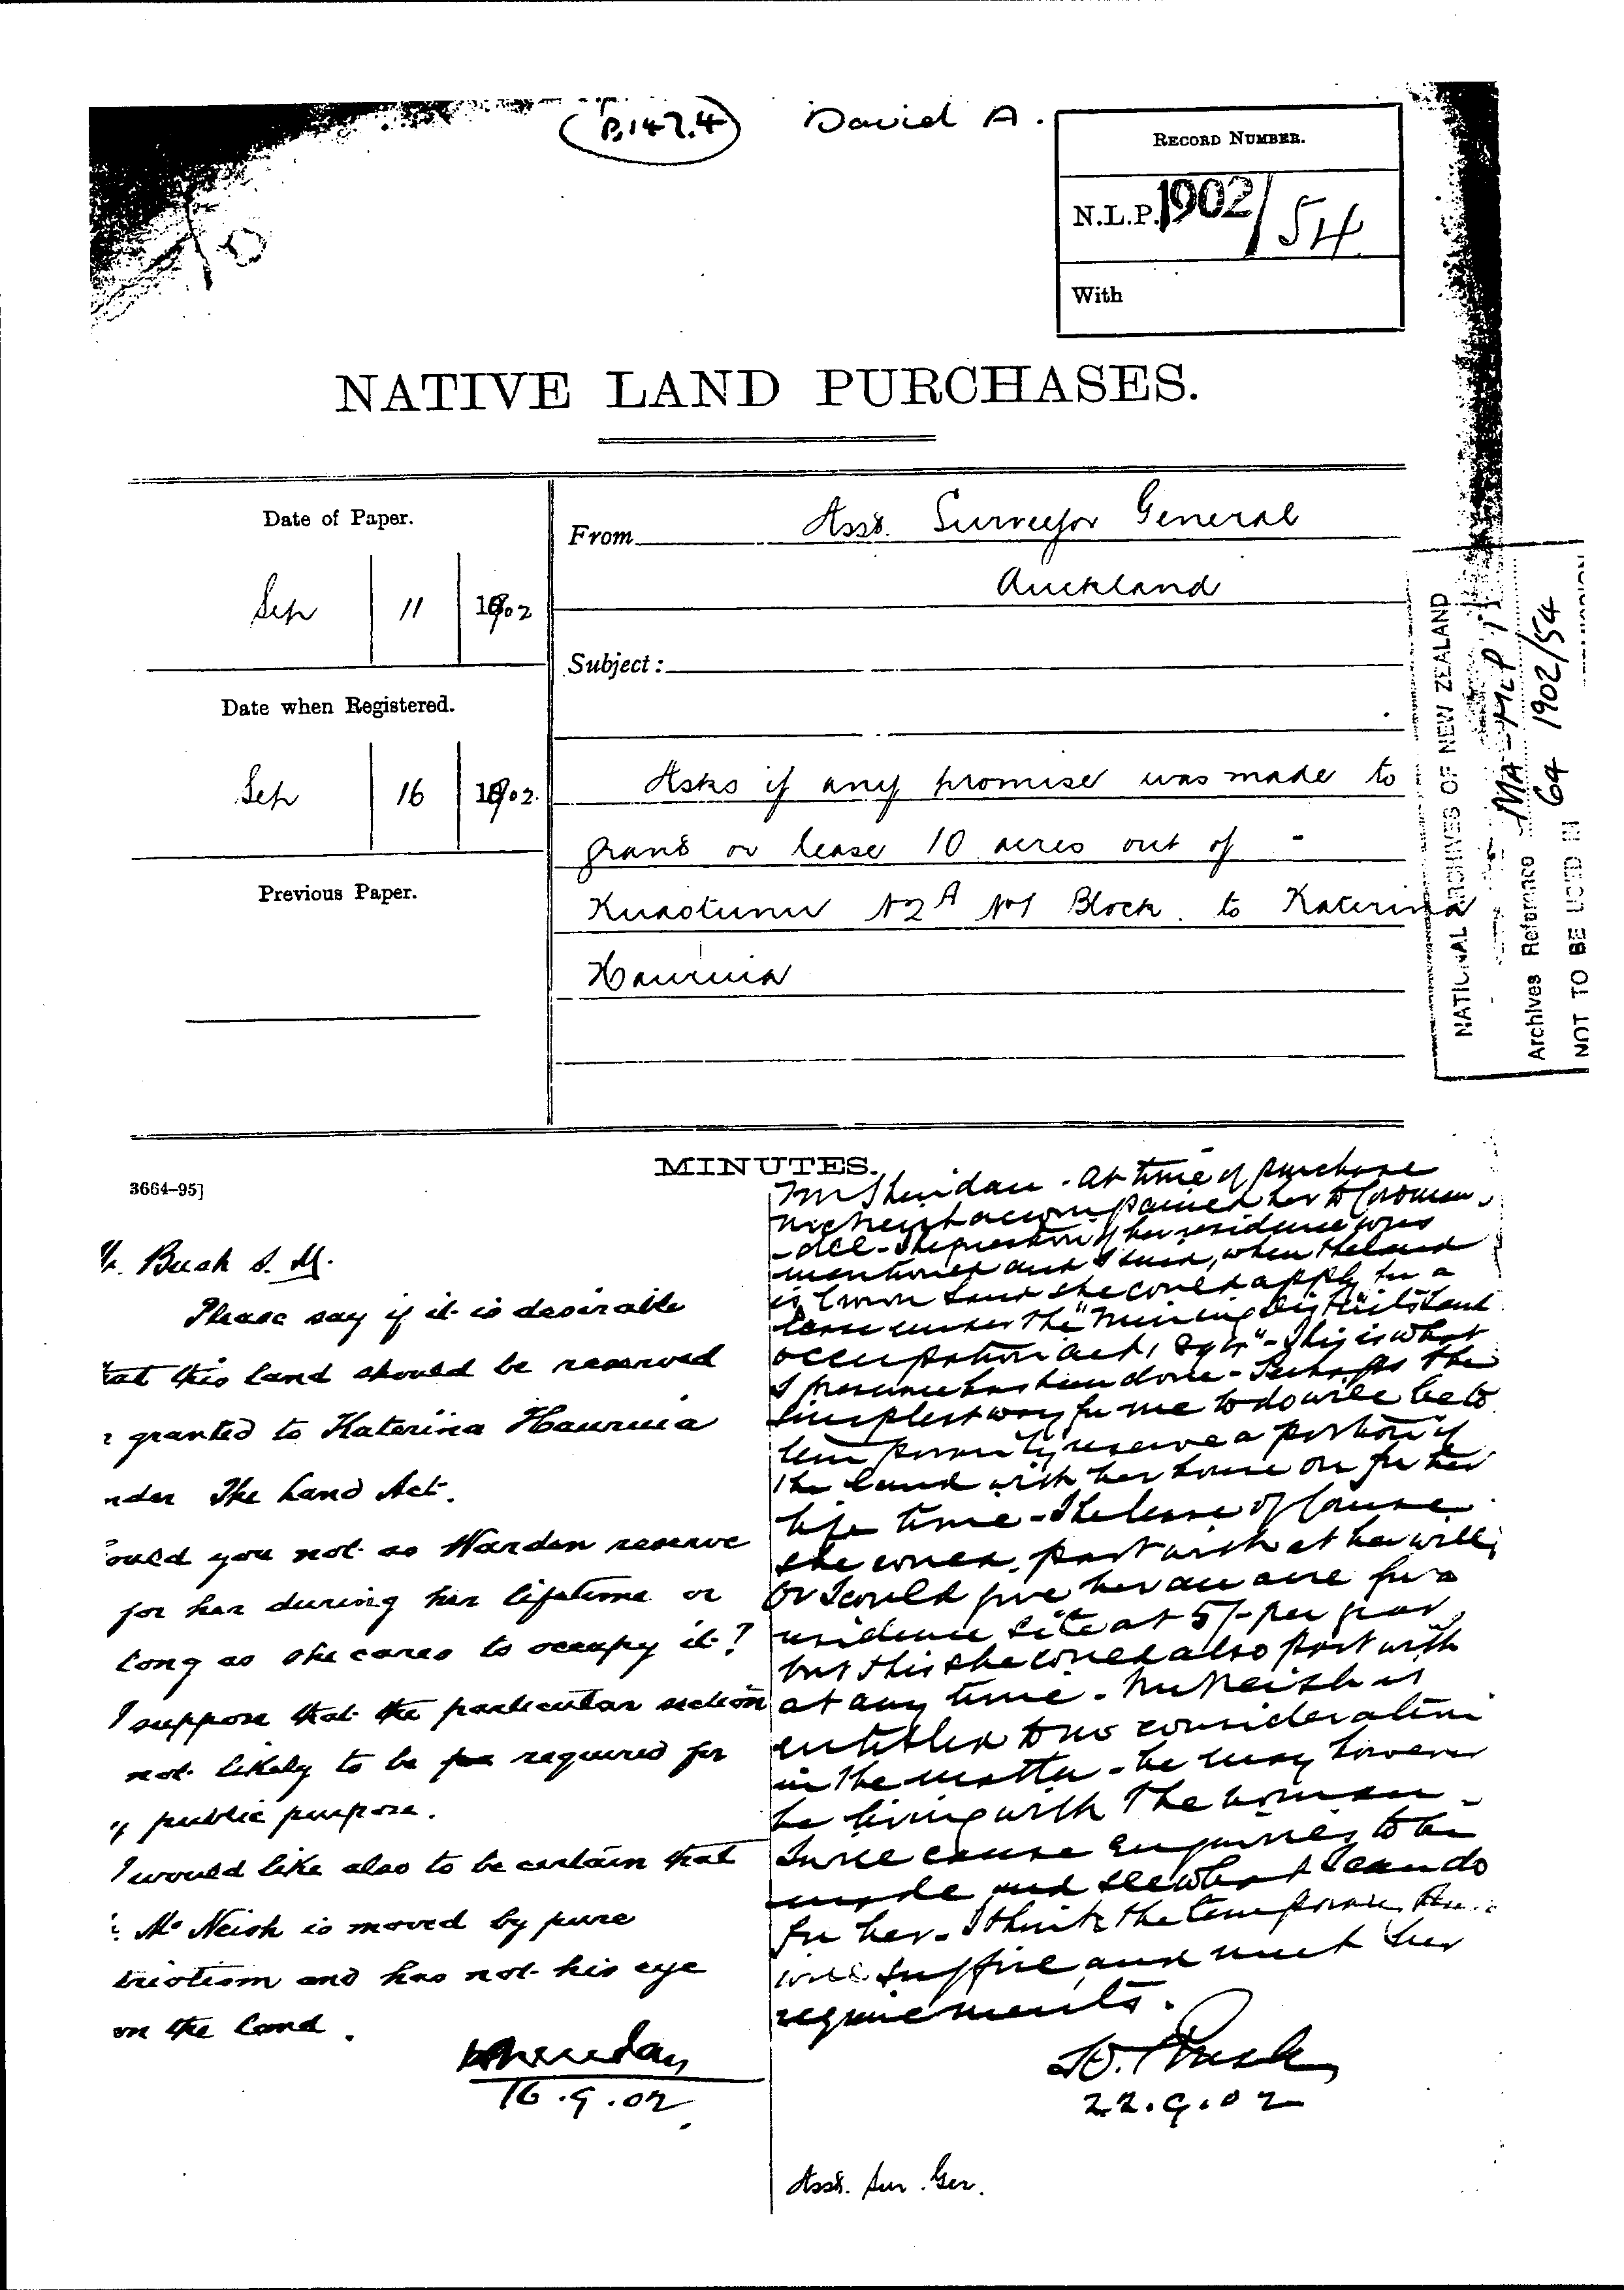 B.147.4
David A.
RECORD NUMBER.
N.L.P. 1902/54
With
NATIVE LAND PURCHASES.
Date of Paper.
Sep 11 1902
Date when Registered.
Sep 16 1902.
Previous Paper.
From Asst. Surveyor General
Auckland
Subject:
Asks if any promise was made to
grant or lease 10 acres out of -
Kuaotunu N2A No1 Block. to Katerina
Hauruia
NATIONAL ARCHIVES OF NEW ZEALAND
MA-MLP 1
Archives Reference 64 1902/54
NOT TO BE USED IN
MINUTES.
3664-95]
Bush S. M.
Please say if it is desirable
this land should be reserved
granted to Katerina Hauruia
The Land Act.
you not as Warden reserve
for her during her lifetime or
long as she cares to occupy it?
I suppose that the particular section
not likely to be required for
public purpose.
I would like also to be certain that
McNeish is moved by pure
and has not his eye
on the land.
Sheridan
16.9.02
Mr Sheridan - At time of purchase
McNeish accompanied her to Coroman
-del - The question of her residence was
mentioned and I said, when the land
is Crown Land she could apply for a
lease under the "Mining Districts Land
Occupation Act, 1894" - This is what
I presume has been done - Perhaps the
simplest way for me to do will be to
temporarily reserve a portion of
the land with her house on for her
life time - The lease of course
she could part with at her will,
Or I could give her an acre for a
residence site at 5/- per year,
but this she could also part with
at any time. McNeish is
entitled to no consideration
in the matter - he may however
be living with the woman -
I will cause enquiries to be
made and see what I can do
for her - I think the temporary
will suffice and meet her
requirements.
Bush
22.9.02
Asst. Sur. Gen.